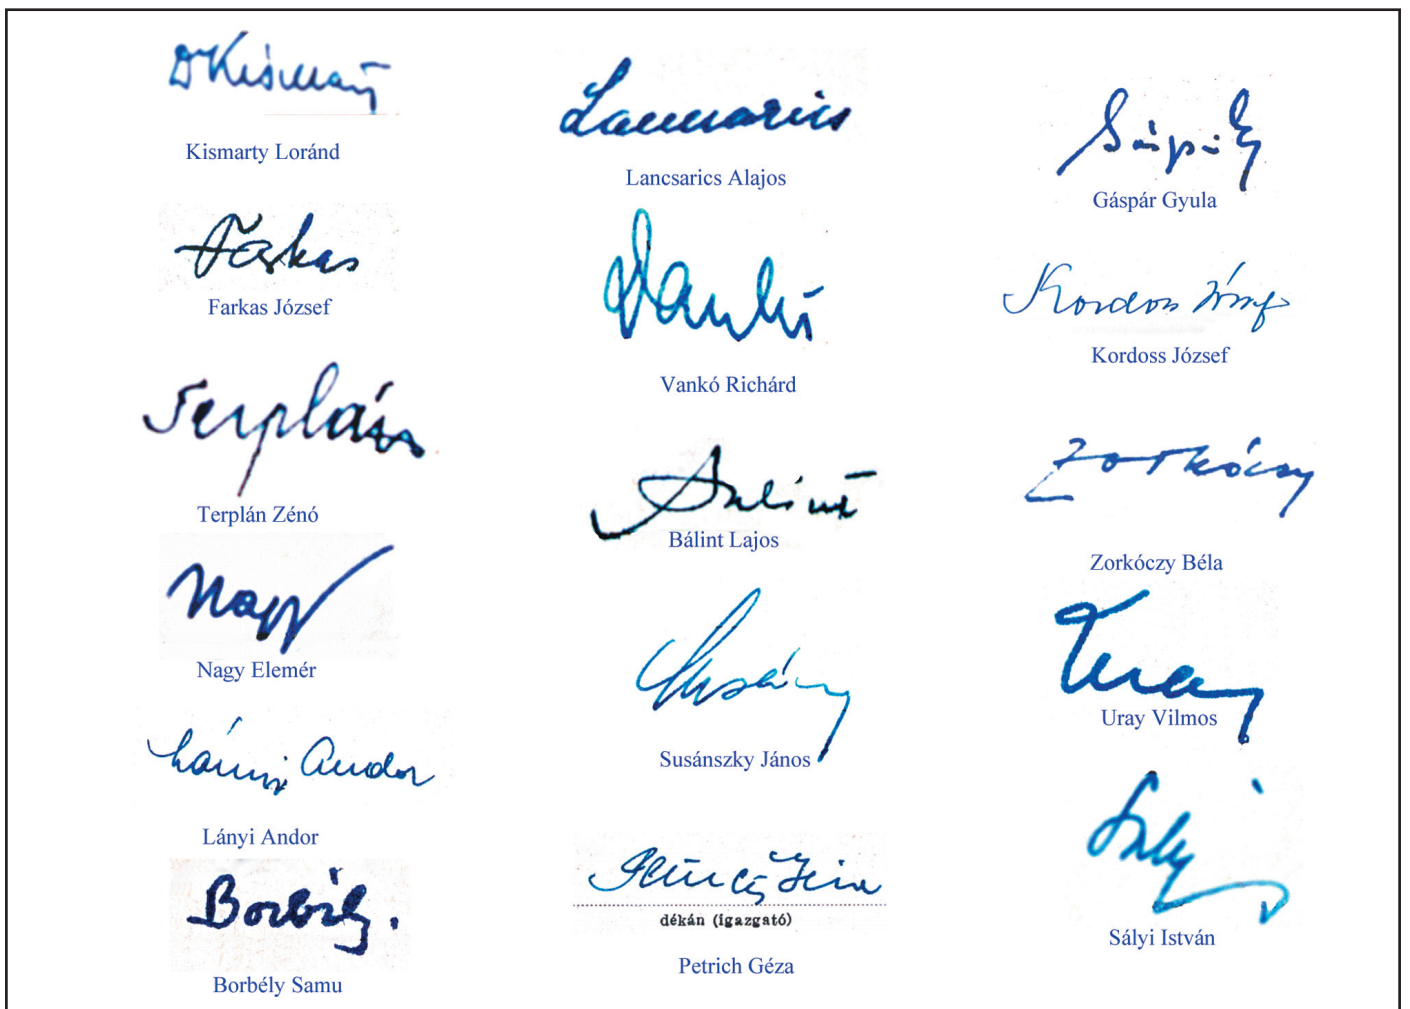 DKismarty
Kismarty Loránd
Farkas
Farkas József
Terplán
Terplán Zénó
Nagy
Nagy Elemér
Lányi Andor
Lányi Andor
Borbély.
Borbély Samu
Lancsarics
Lancsarics Alajos
Vankó
Vankó Richárd
Bálint
Bálint Lajos
Susánszky János
dékán (igazgató)
Petrich Géza
Gáspár Gyula
Kordoss József
Kordoss József
Zorkóczy
Zorkóczy Béla
Uray
Uray Vilmos
Sályi
Sályi István